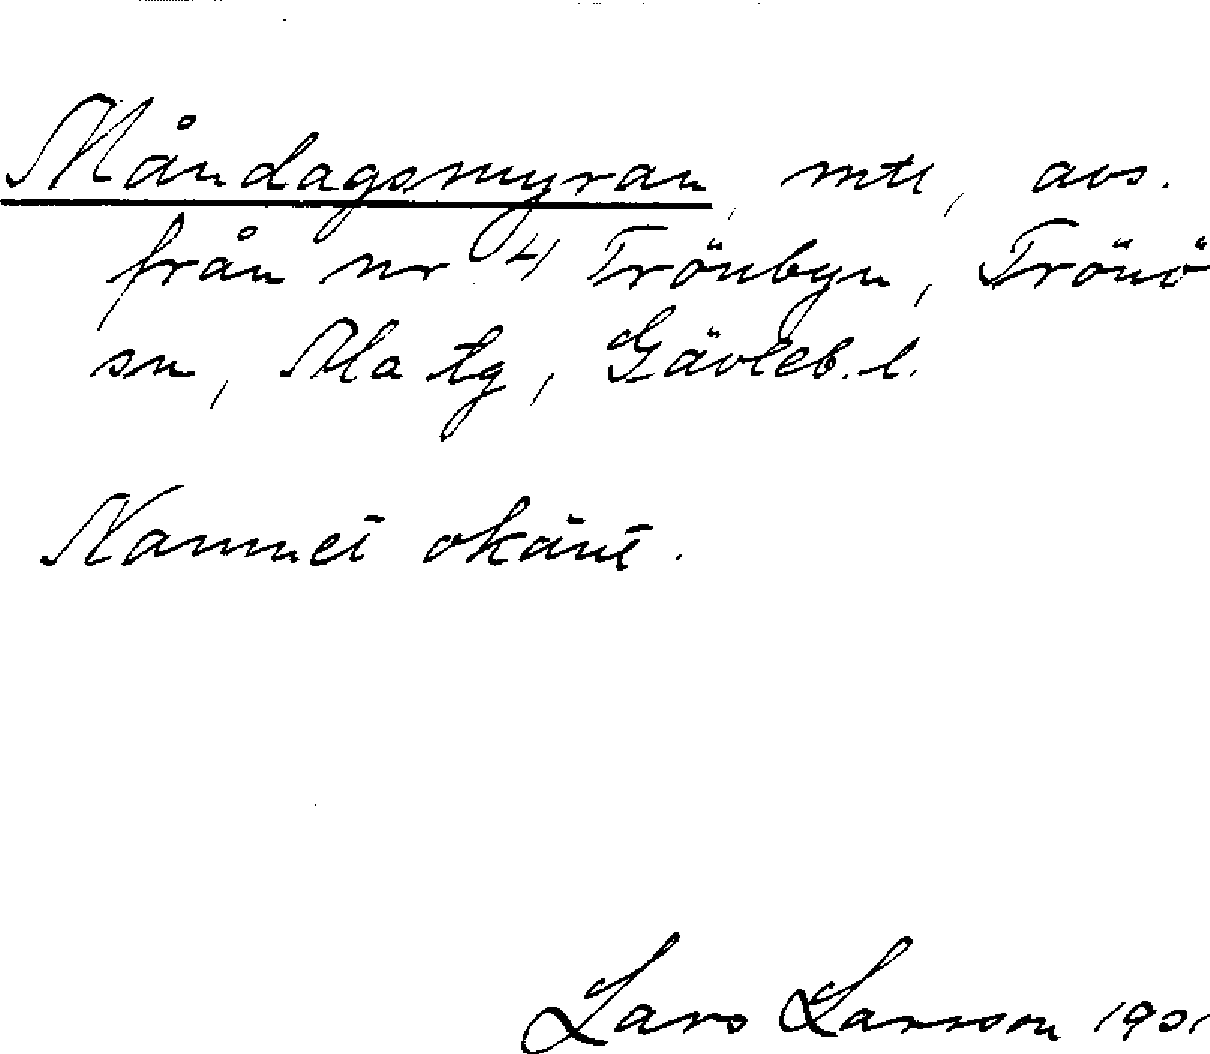 Måndagsmyran, mtl, avs.
från nr 4 Trönbyn, Trönö
sn, Ala tg, Gävleb. l.
Namnet okänt.
Lars Larsson 1901